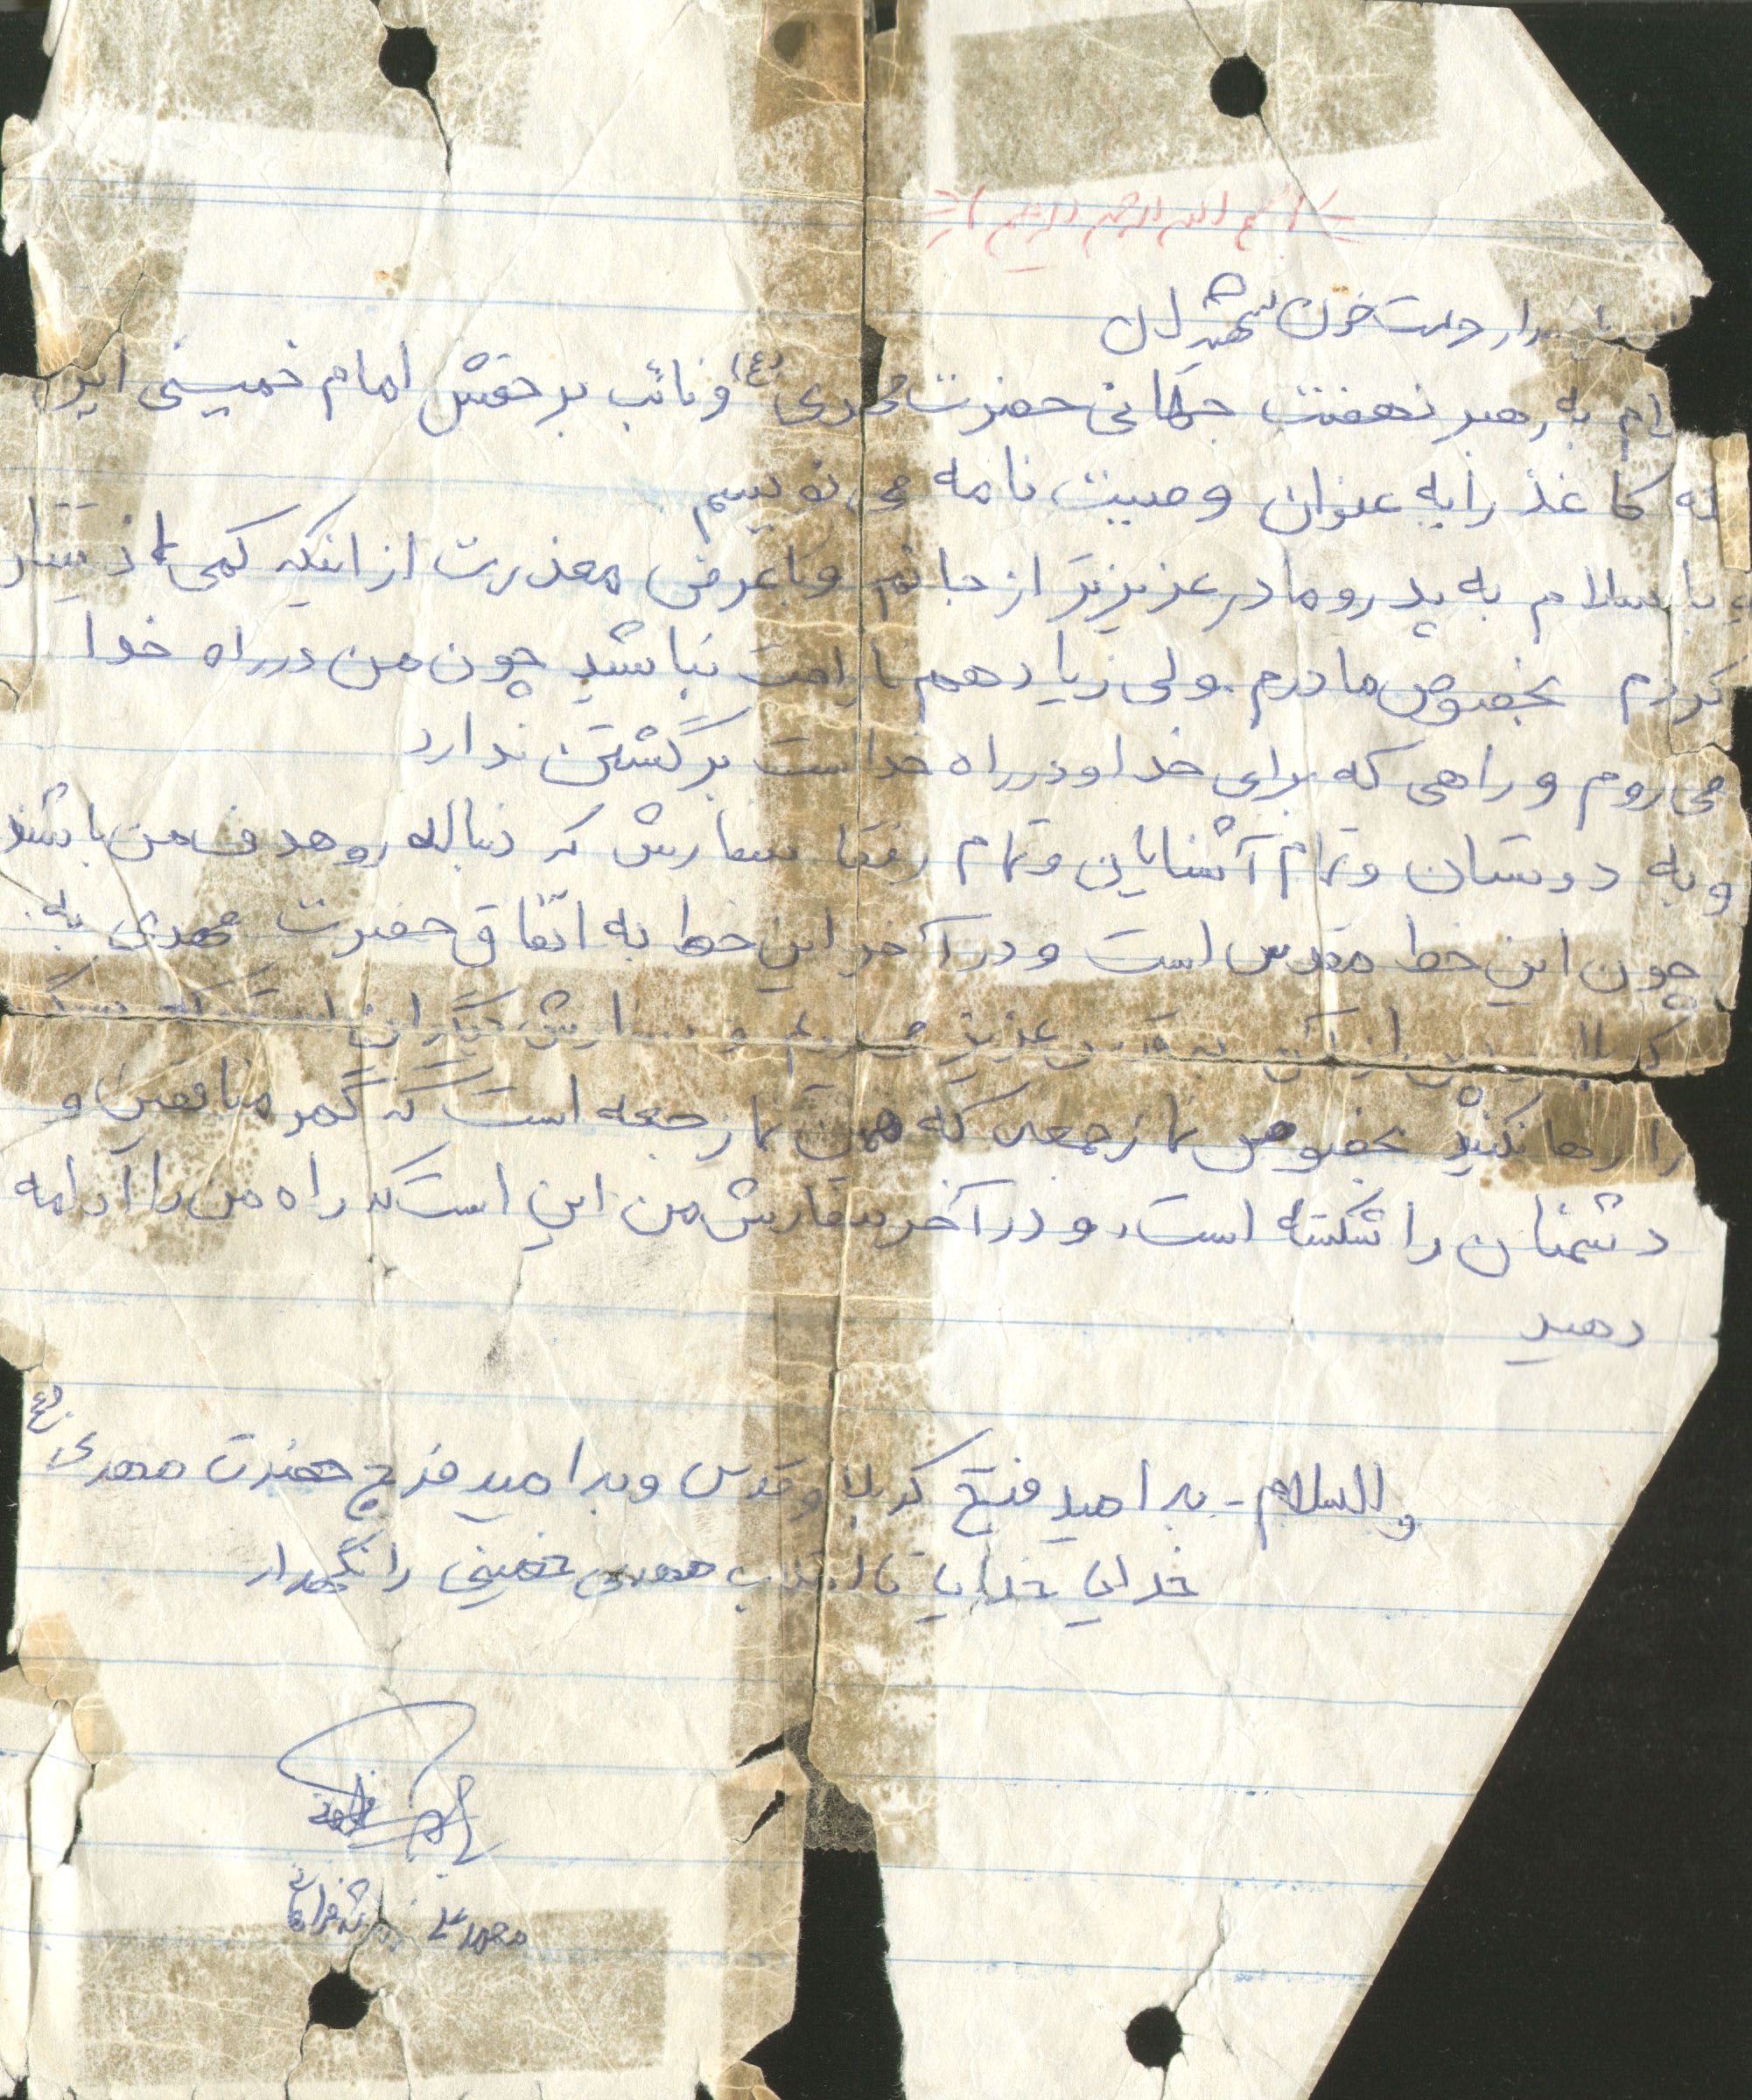 بسم الله الرحمن الرحیم
پاسدار حرمت خون شهیدان
به رهبر نهضت جهانی حضرت مهدی (عج) و نائب بر حقش امام خمینی این
کاغذ را به عنوان وصیت نامه می نویسم
با سلام به پدر و مادر عزیزتر از جانم و با عرض معذرت از اینکه کمی
کردم بخصوص مادرم ولی زیاد هم ناراحت نباشید چون من در راه خدا
می روم و راهی که برای خدا و در راه خداست برگشتن ندارد
و به دوستان و تمام آشنایان و تمام رفقا سفارش که دنباله رو هدف من باشند
چون این خط مقدس است و در آخر این خط به اتفاق حضرت مهدی به
کربلا عزیز می رویم و سفارش دیگر این است که سنگر
را رها نکنید بخصوص نماز جمعه که همین نماز جمعه است که کمر منافقین و
دشمنان را شکسته است، و در آخر سفارش من این است که راه من را ادامه
دهید
والسلام - به امید فتح کربلا و قدس و به امید فرج حضرت مهدی (عج)
خدایا خدایا تا انقلاب مهدی خمینی را نگهدار
محمد علی